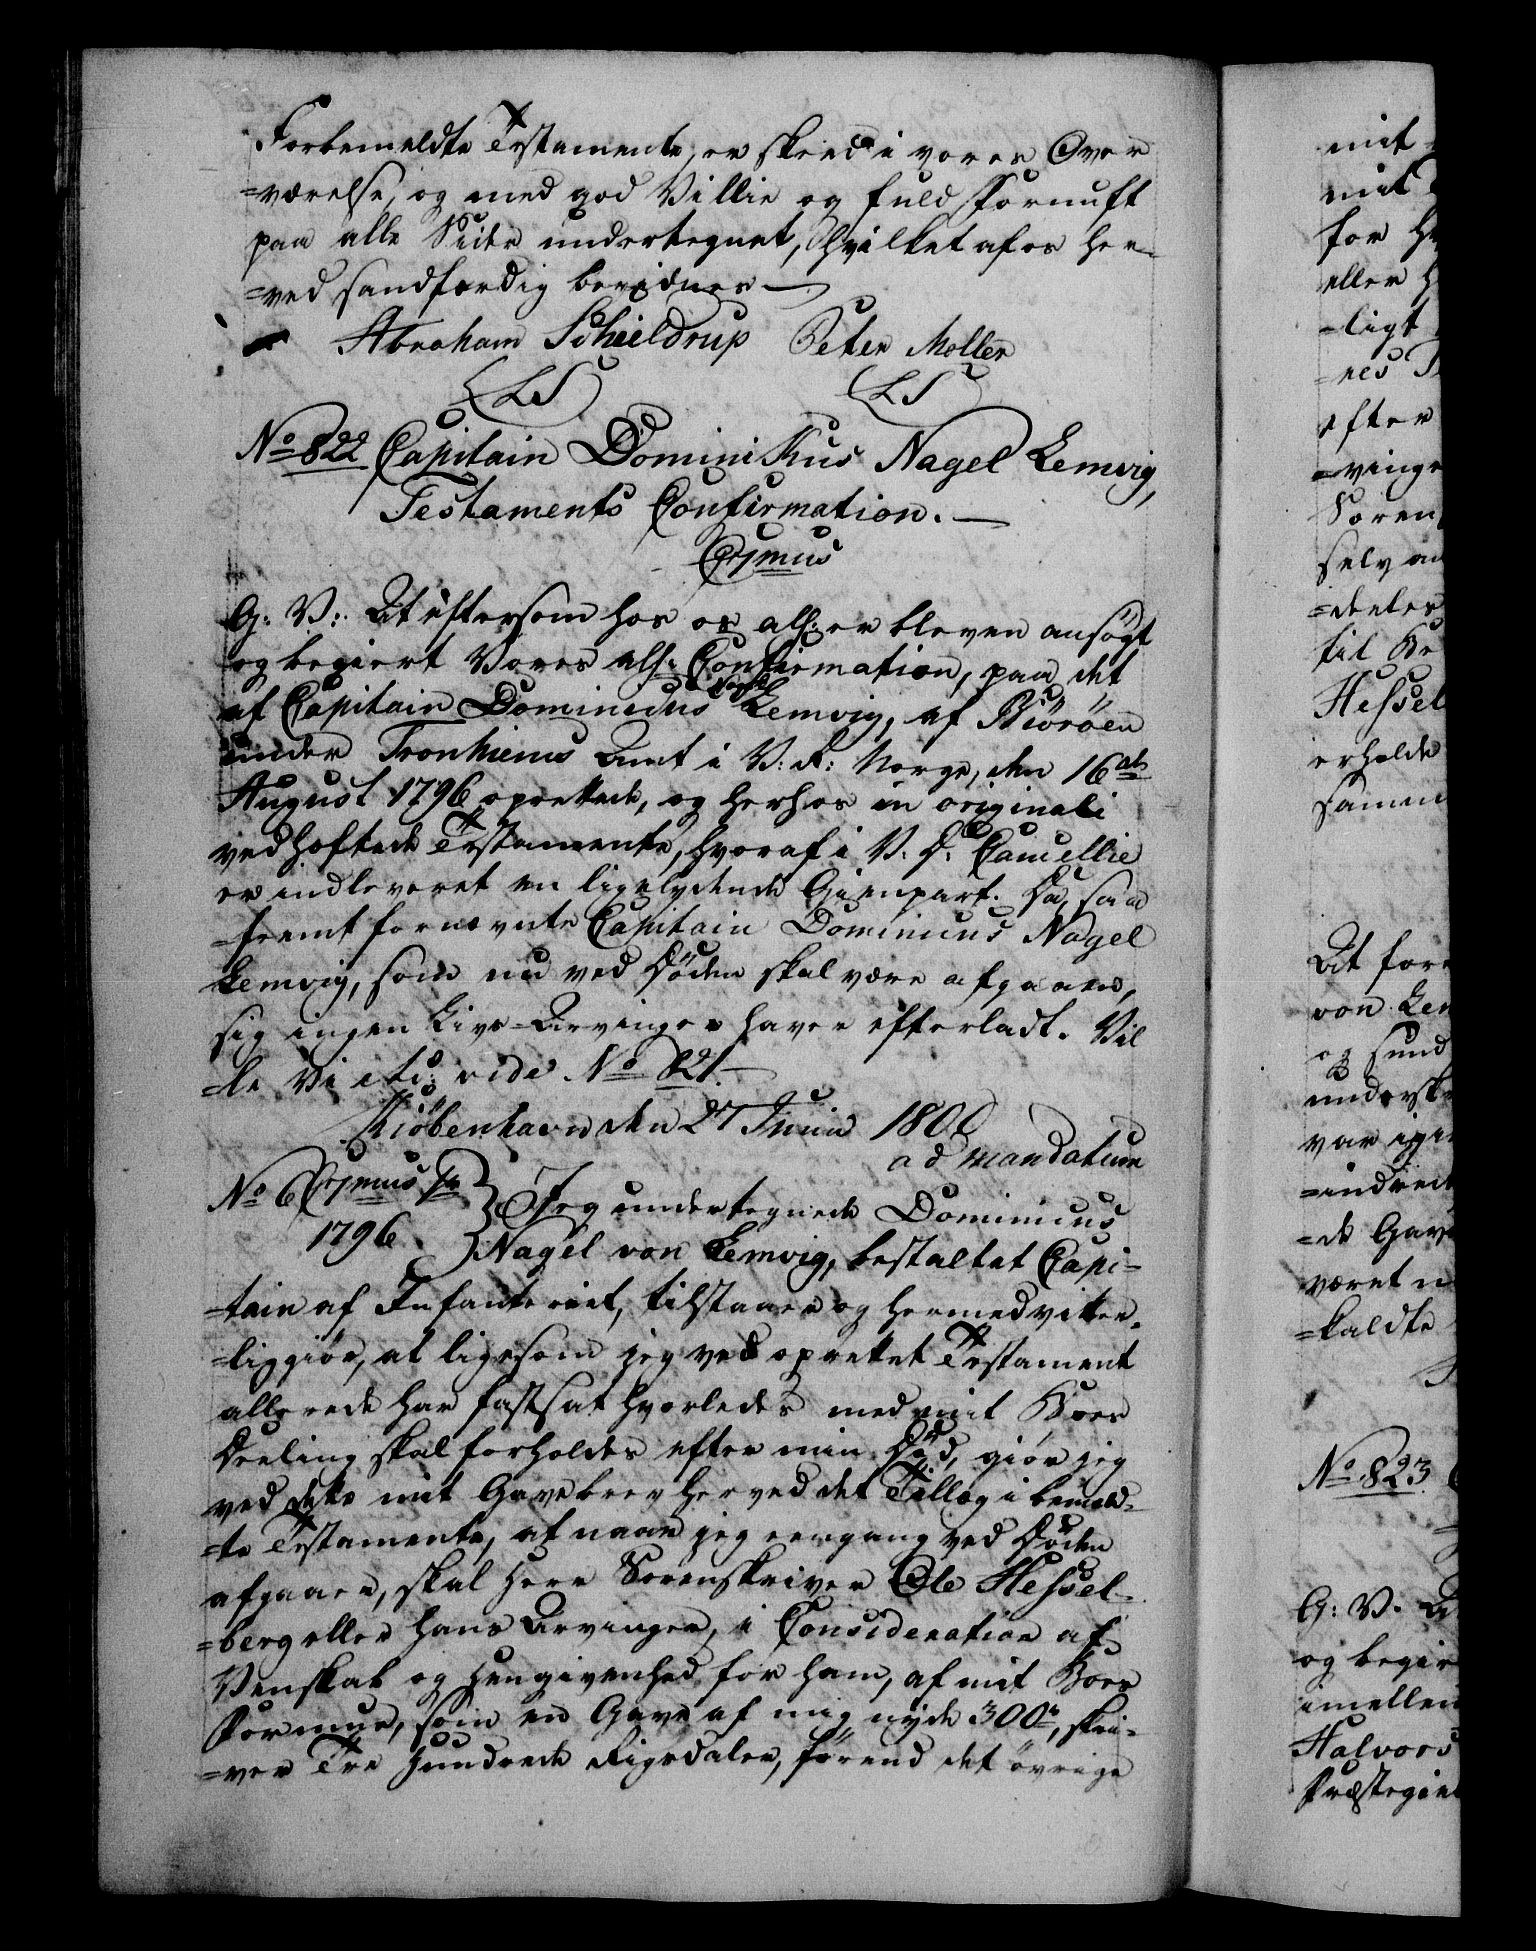 Forbemeldte Testamente, er skeed i vores Over
=værelse, og med god Villie og fuld Fornuft
paa alle Sider undertegnet, Hvilket af os her
=ved sandfærdig bevidnes
Abraham Schieldrup Peter Moller
LS LS
No 822 Capitain Dominikus Nagel Lemvig,
Testaments Confirmation.
Cr7mus
G: V: At eftersom hos os all: er bleven ansögt
og begiert Vores all: Confirmation, paa det
af Capitain Dominicus Nagel Lemvig, af Biöröen
under Tronhiems Amt i V: R: Norge, den 16de
August 1796 oprettede, og herhos in originali
vedhæftede Testamente, hvoraf i V. D: Cancellie
er indleveret en ligelydende Gienpart. Da, saa
=fremt fornævnte Capitain Dominicus Nagel
Lemvig, som nu ved Döden skal være afgaaen,
sig ingen Livs=Arvinger haver efterladt. Vil
=le Vi etc: vide No 821.
Kiöbenhavn den 27 Junii 1800
ad mandatum
No 6 Cr7mus
1796. Jeg undertegnede Dominicus
Nagel von Lemvig, bestaltet Capi=
=tain af Infanteriet, tilstaaer og hermed vitter=
=liggiör, at ligesom jeg ved oprettet Testament
allerede har fastsat hvorledes med mit Boes
Deeling skal forholdes efter min Död, giör jeg
ved dette mit Gavebrev herved det Tillæg i bemeld=
=te Testamente, at naar jeg eengang ved Döden
afgaaer, skal Herr Sorenskriver Ole Hessel=
=berg eller hans Arvinger, i Consideration af
Venskab og Hengivenhed for ham, af mit Boes
Formue, som en Gave af mig nyde 300r, skri=
=ver Tre Hundrede Rigsdaler, förend det övrige
mit
mit
for H
eller H
=ligt
=nes T
efter
=vinge
Soren
selv an
=deeles
til Be
Hessel
erholde
samme
At fore
von Lem
og sund
undersk
var igie
=indret
=de Gave
været n
=kaldte
No 823
G: V. A
og begie
imellem
Halvors
Præstegie